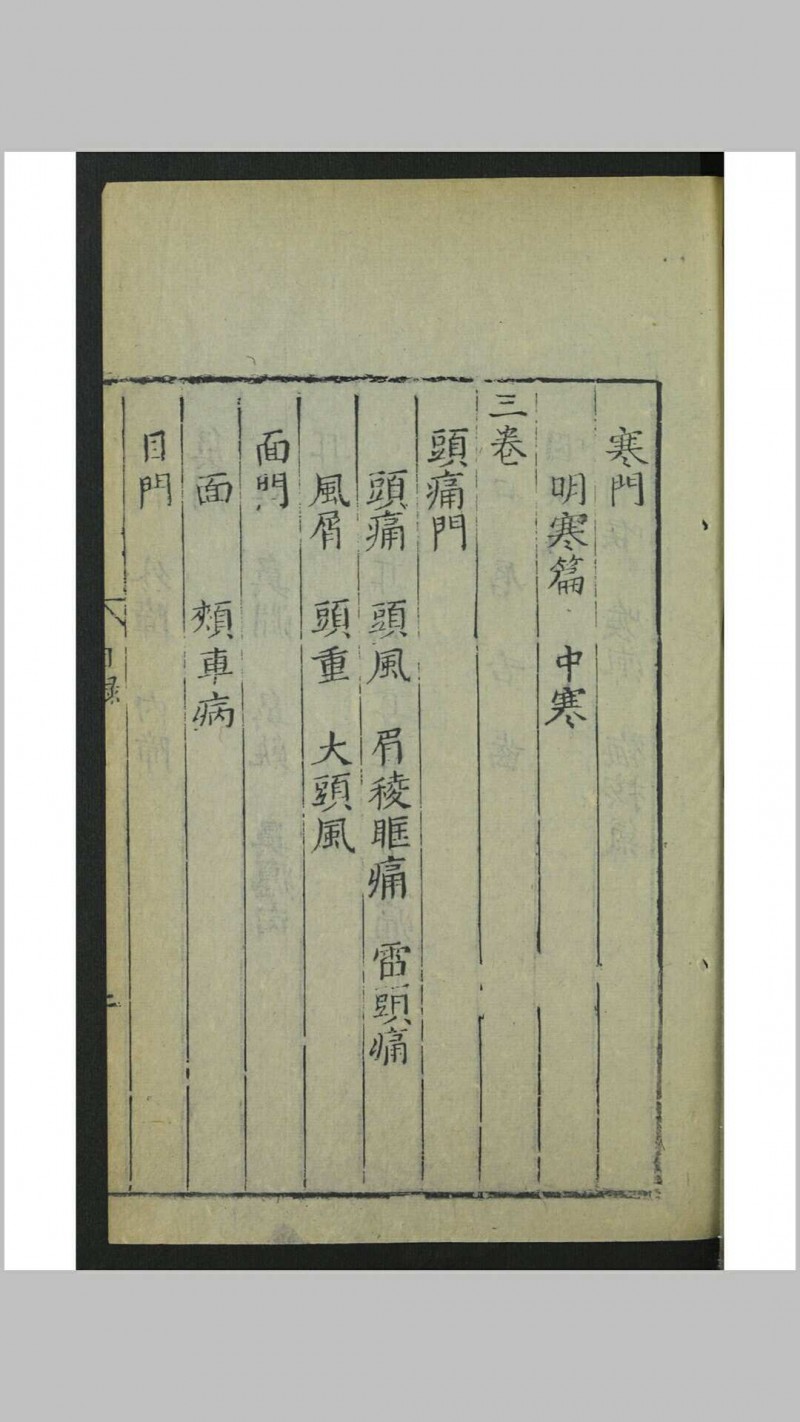 寒門
明寒篇 中寒
三卷
頭痛門
頭痛 頭風 眉稜眶痛 雷頭痛
風屑 頭重 大頭風
面門
面 頰車病
目門
目錄